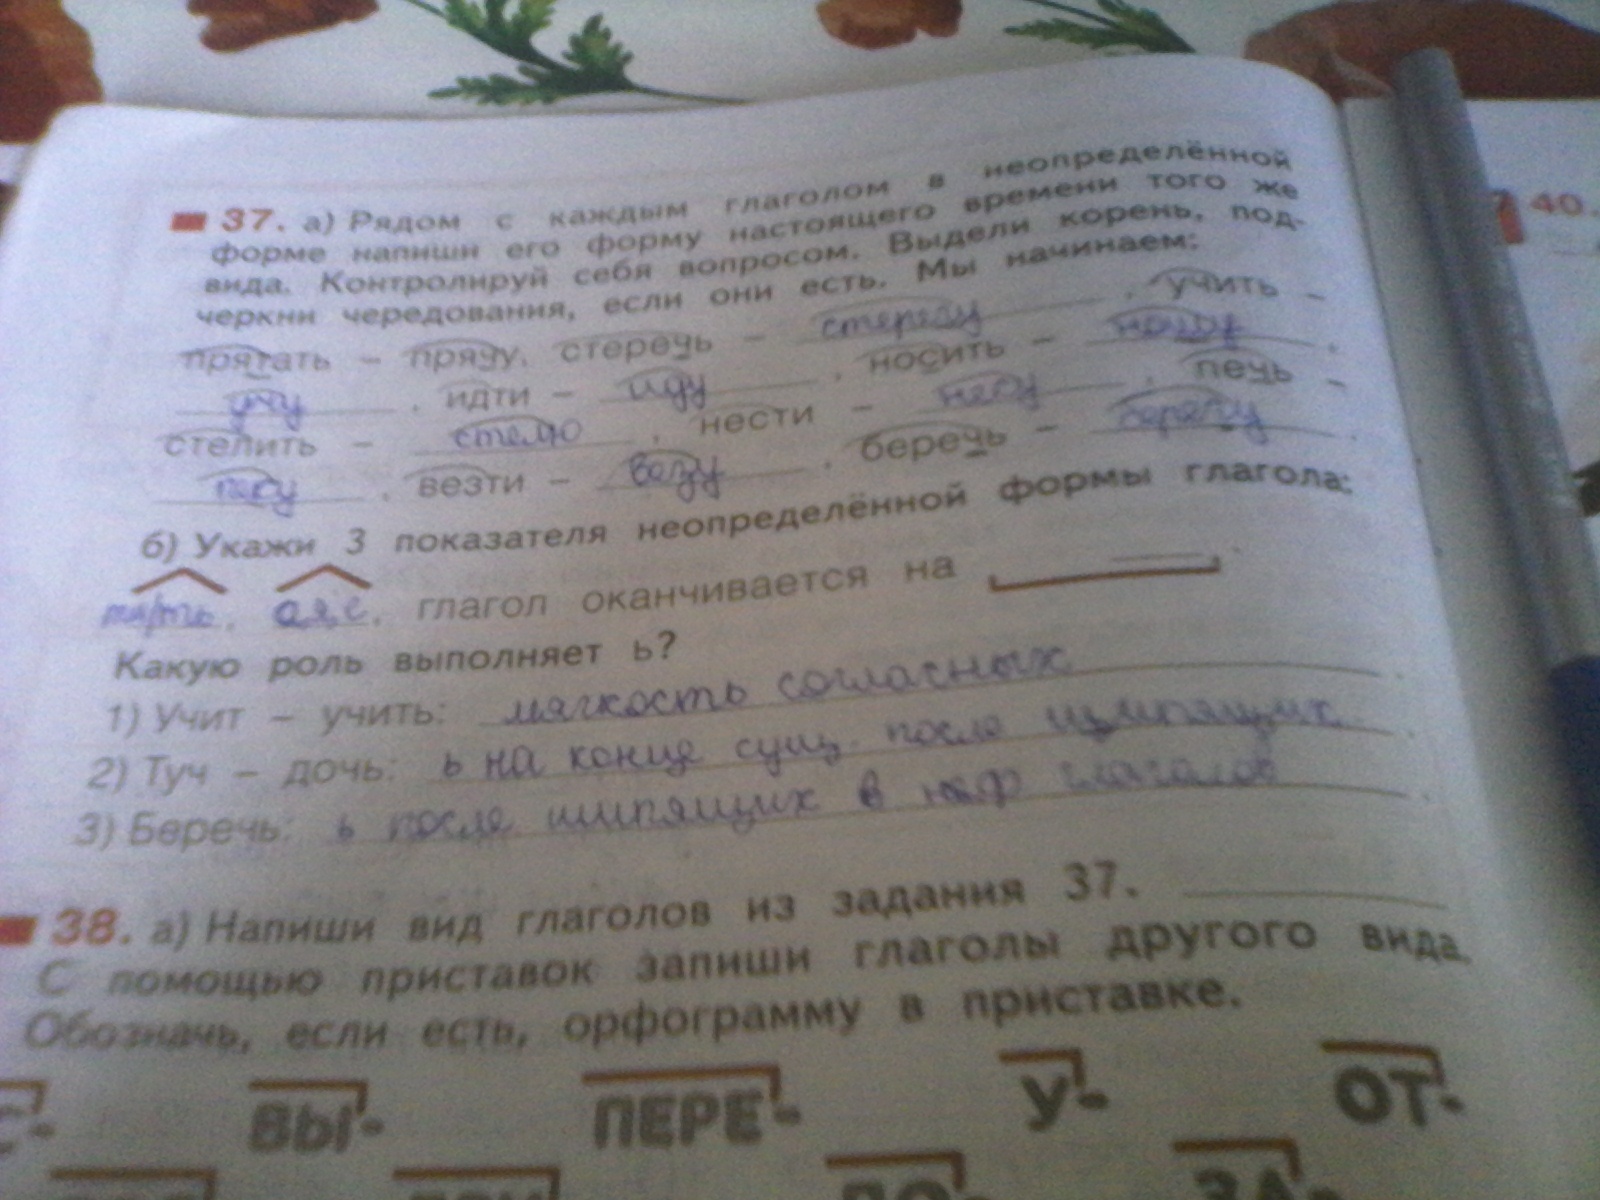 37. а) Рядом с каждым глаголом в неопределённой
40.
форме напиши его форму настоящего времени того же
вида. Контролируй себя вопросом. Выдели корень, под-
черкни чередования, если они есть. Мы начинаем:
прятать – прячу, стеречь – стерегу, учить –
учу, идти – иду, носить – ношу,
стелить – стелю, нести – несу, печь –
пеку, везти – везу, беречь – берегу.
б) Укажи 3 показателя неопределённой формы глагола:
ти/ть, глагол оканчивается на
Какую роль выполняет ь?
1) Учит – учить: мягкость согласных.
2) Туч – дочь: ь на конце сущ. после шипящих.
3) Беречь: ь после шипящих в глаголов.
38. а) Напиши вид глаголов из задания 37.
С помощью приставок запиши глаголы другого вида.
Обозначь, если есть, орфограмму в приставке.
ВЫ- ПЕРЕ- У- ОТ-
ЗА-